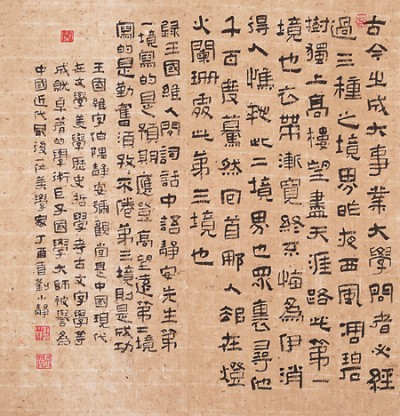 古今之成大事業大學問者必經
過三種之境界昨夜西風凋碧
樹獨上高樓望盡天涯路此第一
境也衣帶漸寬終不悔為伊消
得人憔悴此二境界也眾裏尋他
千百度驀然回首那人卻在燈
火闌珊處此第三境也
錄王國維人間詞話中語靜安先生第
一境寫的是預期應登高望遠第二境
寫的是勤奮須孜々不倦第三境則是成功
王國維字伯隅靜安號觀堂是中國現代
在文學美學歷史哲學考古文字學等
成就卓著的學術巨子國學大師被譽為
中國近代最後一位美學家丁酉夏劉小靜